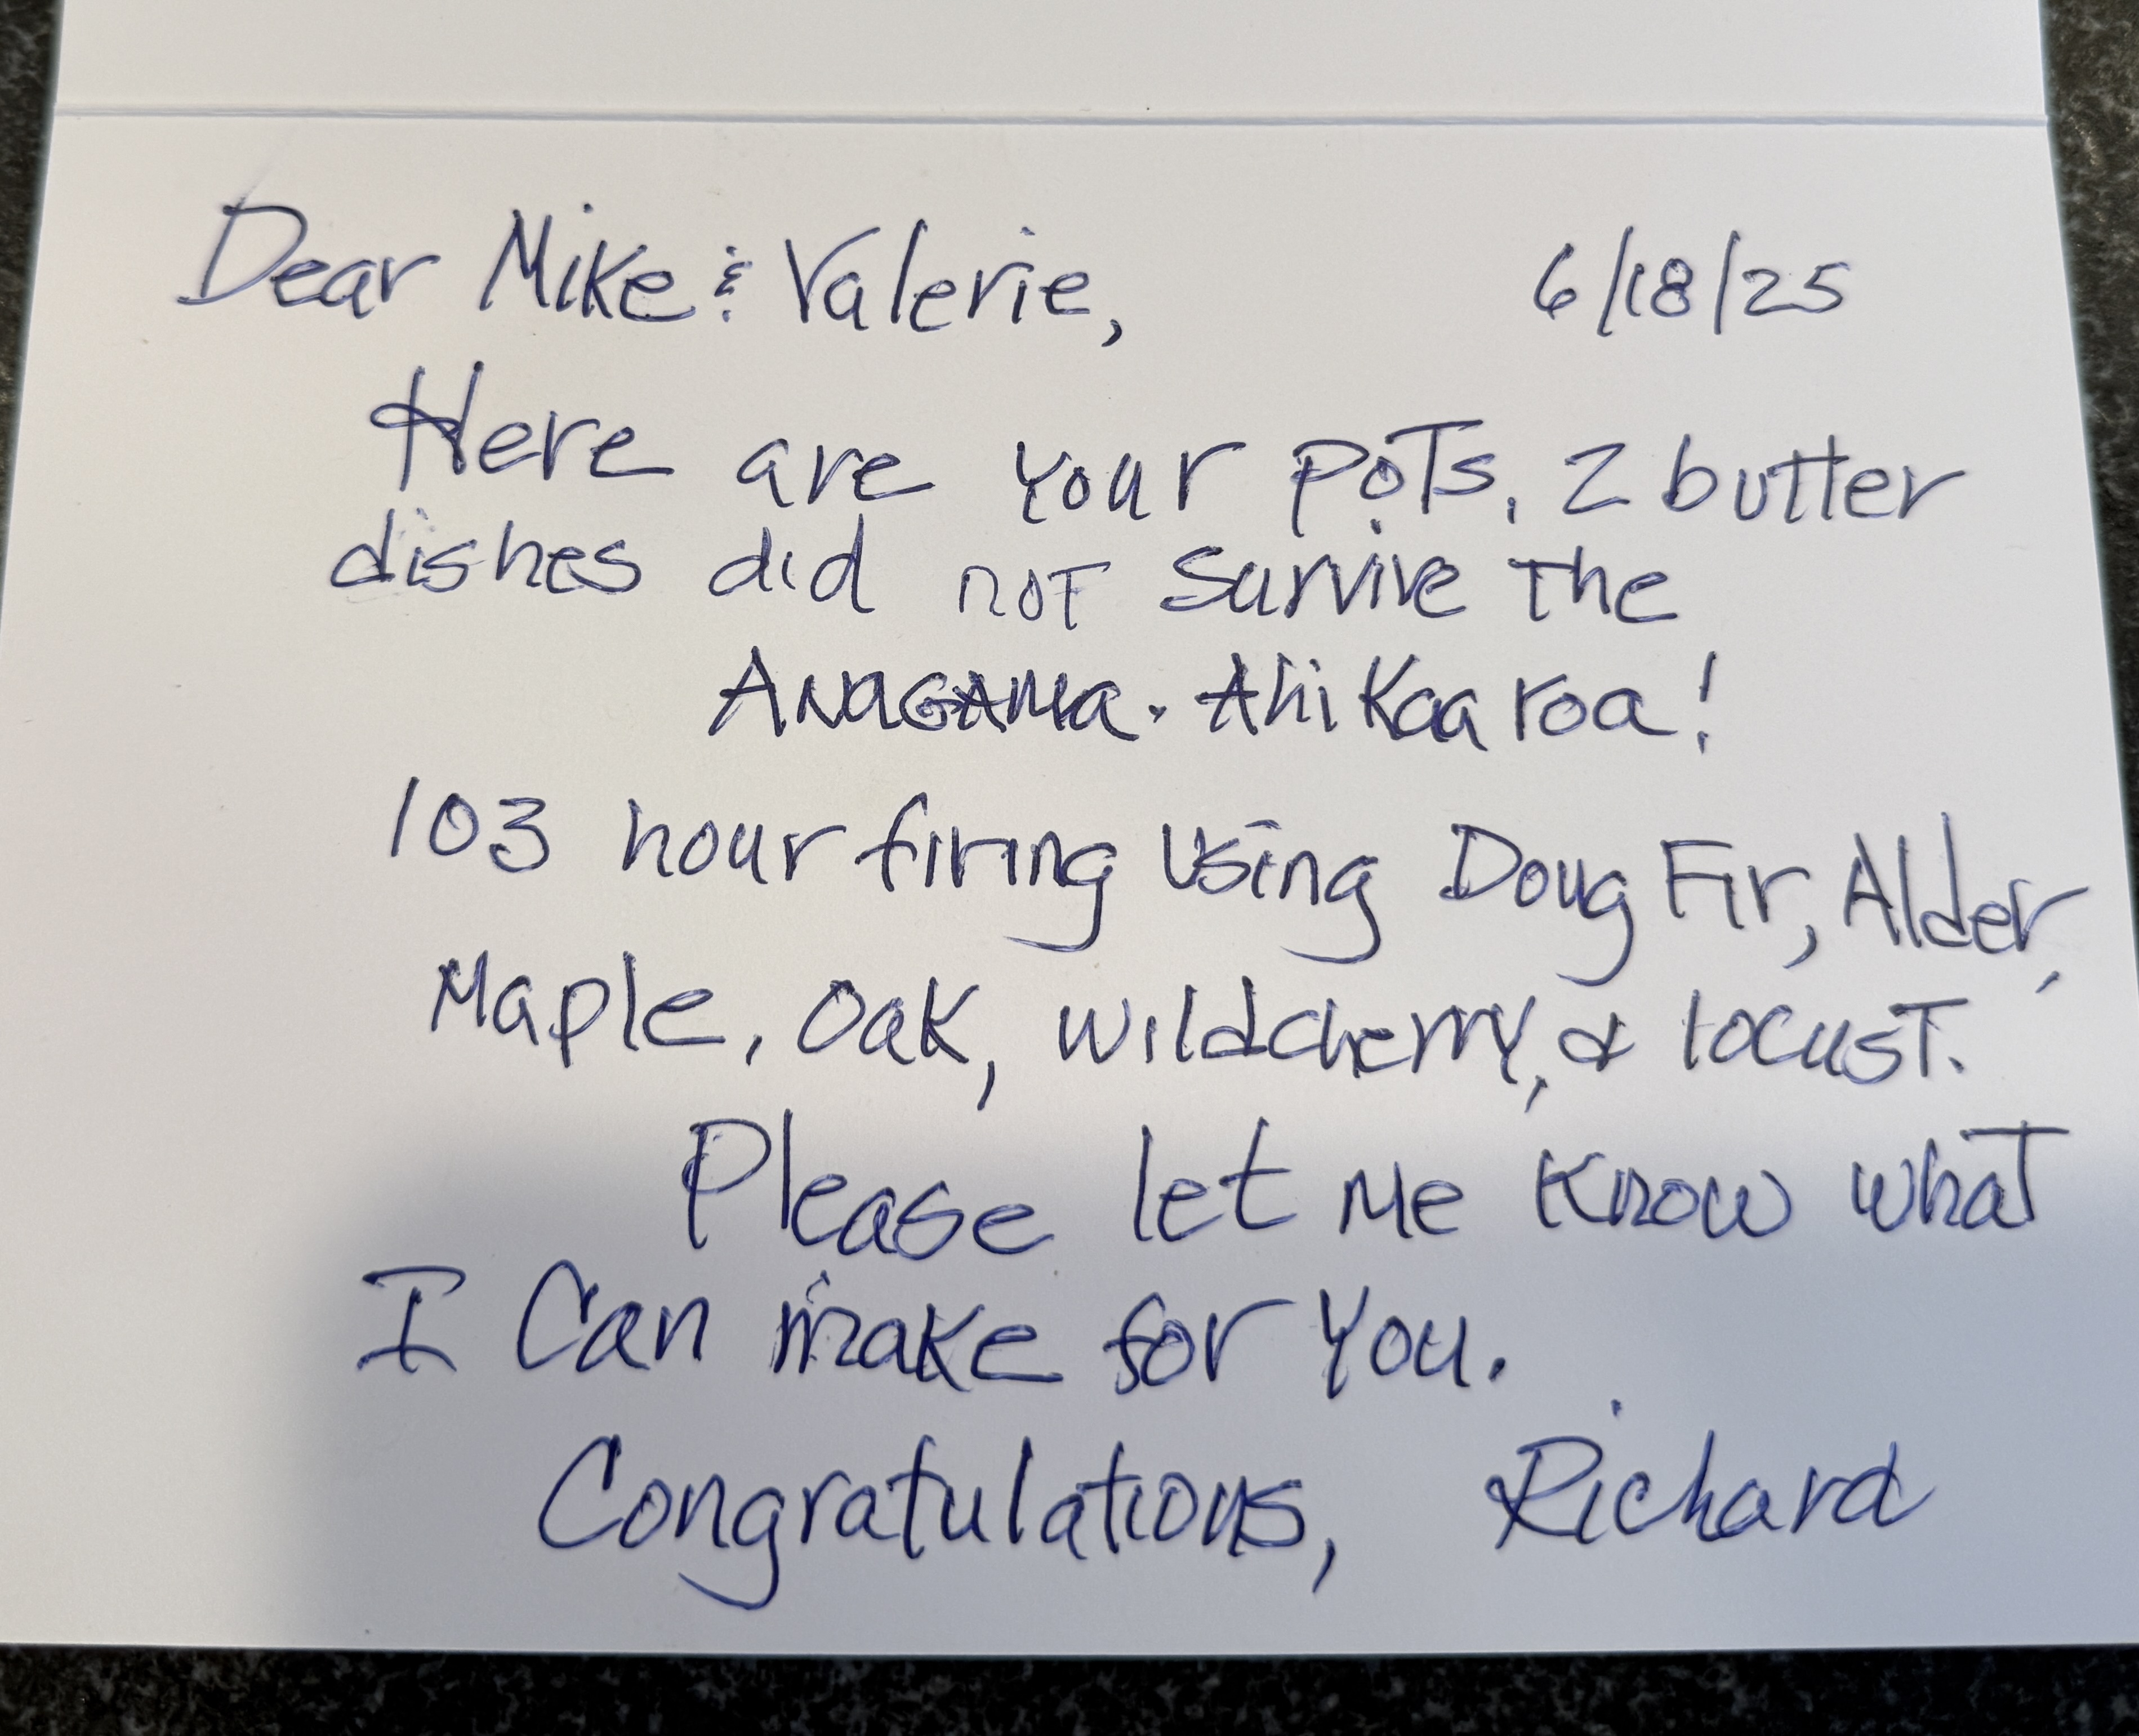 Dear Mike & Valerie, 6/18/25
Here are your pots. 2 butter
dishes did not survive the
Anagama. Ahi Kaa roa!
103 hour firing using Doug Fir, Alder,
Maple, Oak, wildcherry, & locust.
Please let me know what
I can make for you.
Congratulations, Richard